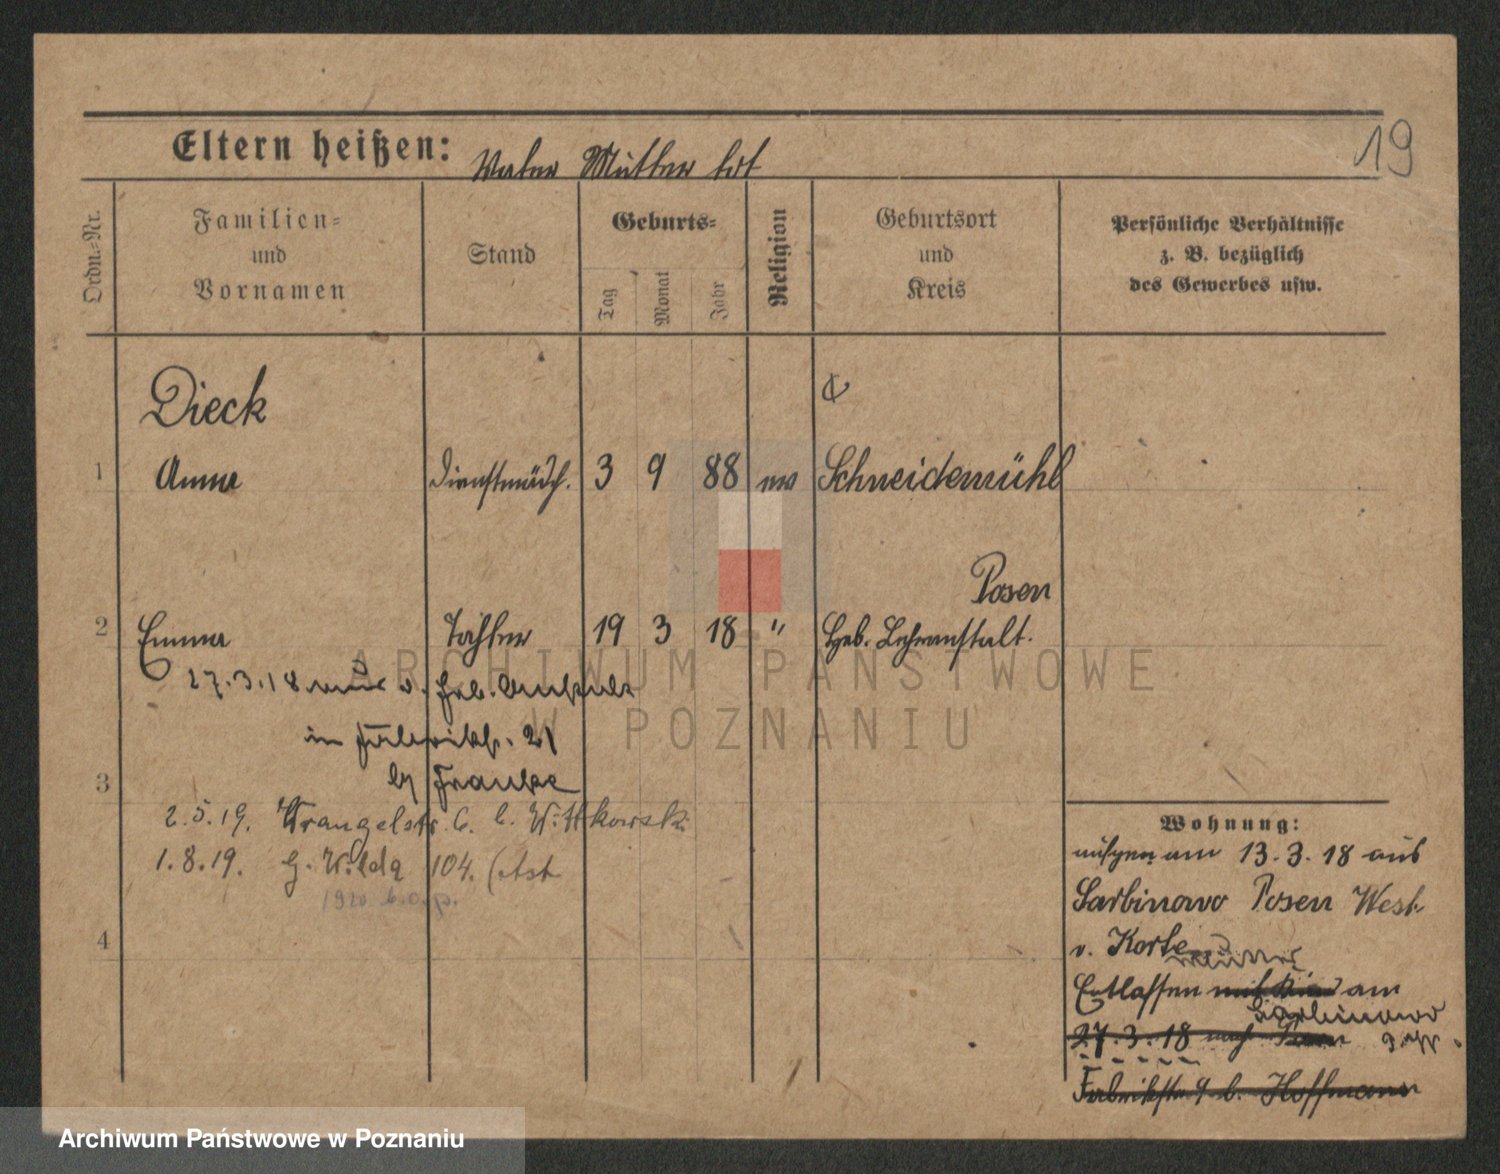 19
Eltern heißen: Vater Mutter tot
Ordn.=Nr.
Familien=
und
Vornamen
Stand
Geburts=
Tag
Monat
Jahr
Religion
Geburtsort
und
Kreis
Persönliche Verhältnisse
z. B. bezüglich
des Gewerbes usw.
Dieck
1 Anna Dienstmädch. 3 9 88 ev Schneidemühl
Posen
2 Emma Tochter 19 3 18 " Heb. Lehranstalt.
27.3.18 v. Heb. Anstalt
in Fabrikstr. 21
by Franke
3
2.5.19. Wrangelstr. 6. b. Wittkowski
1.8.19. G. Wilda 104.
1920
4
Wohnung:
aufgen am 13.3.18 aus
Sarbinowo Posen West
v. Korte
Mutter
Entlassen mit Kind am
Sarbinowo
27.3.18 nach
Fabrikstr. 9 b. Hoffmann
ARCHIWUM PAŃSTWOWE
W POZNANIU
Archiwum Państwowe w Poznaniu